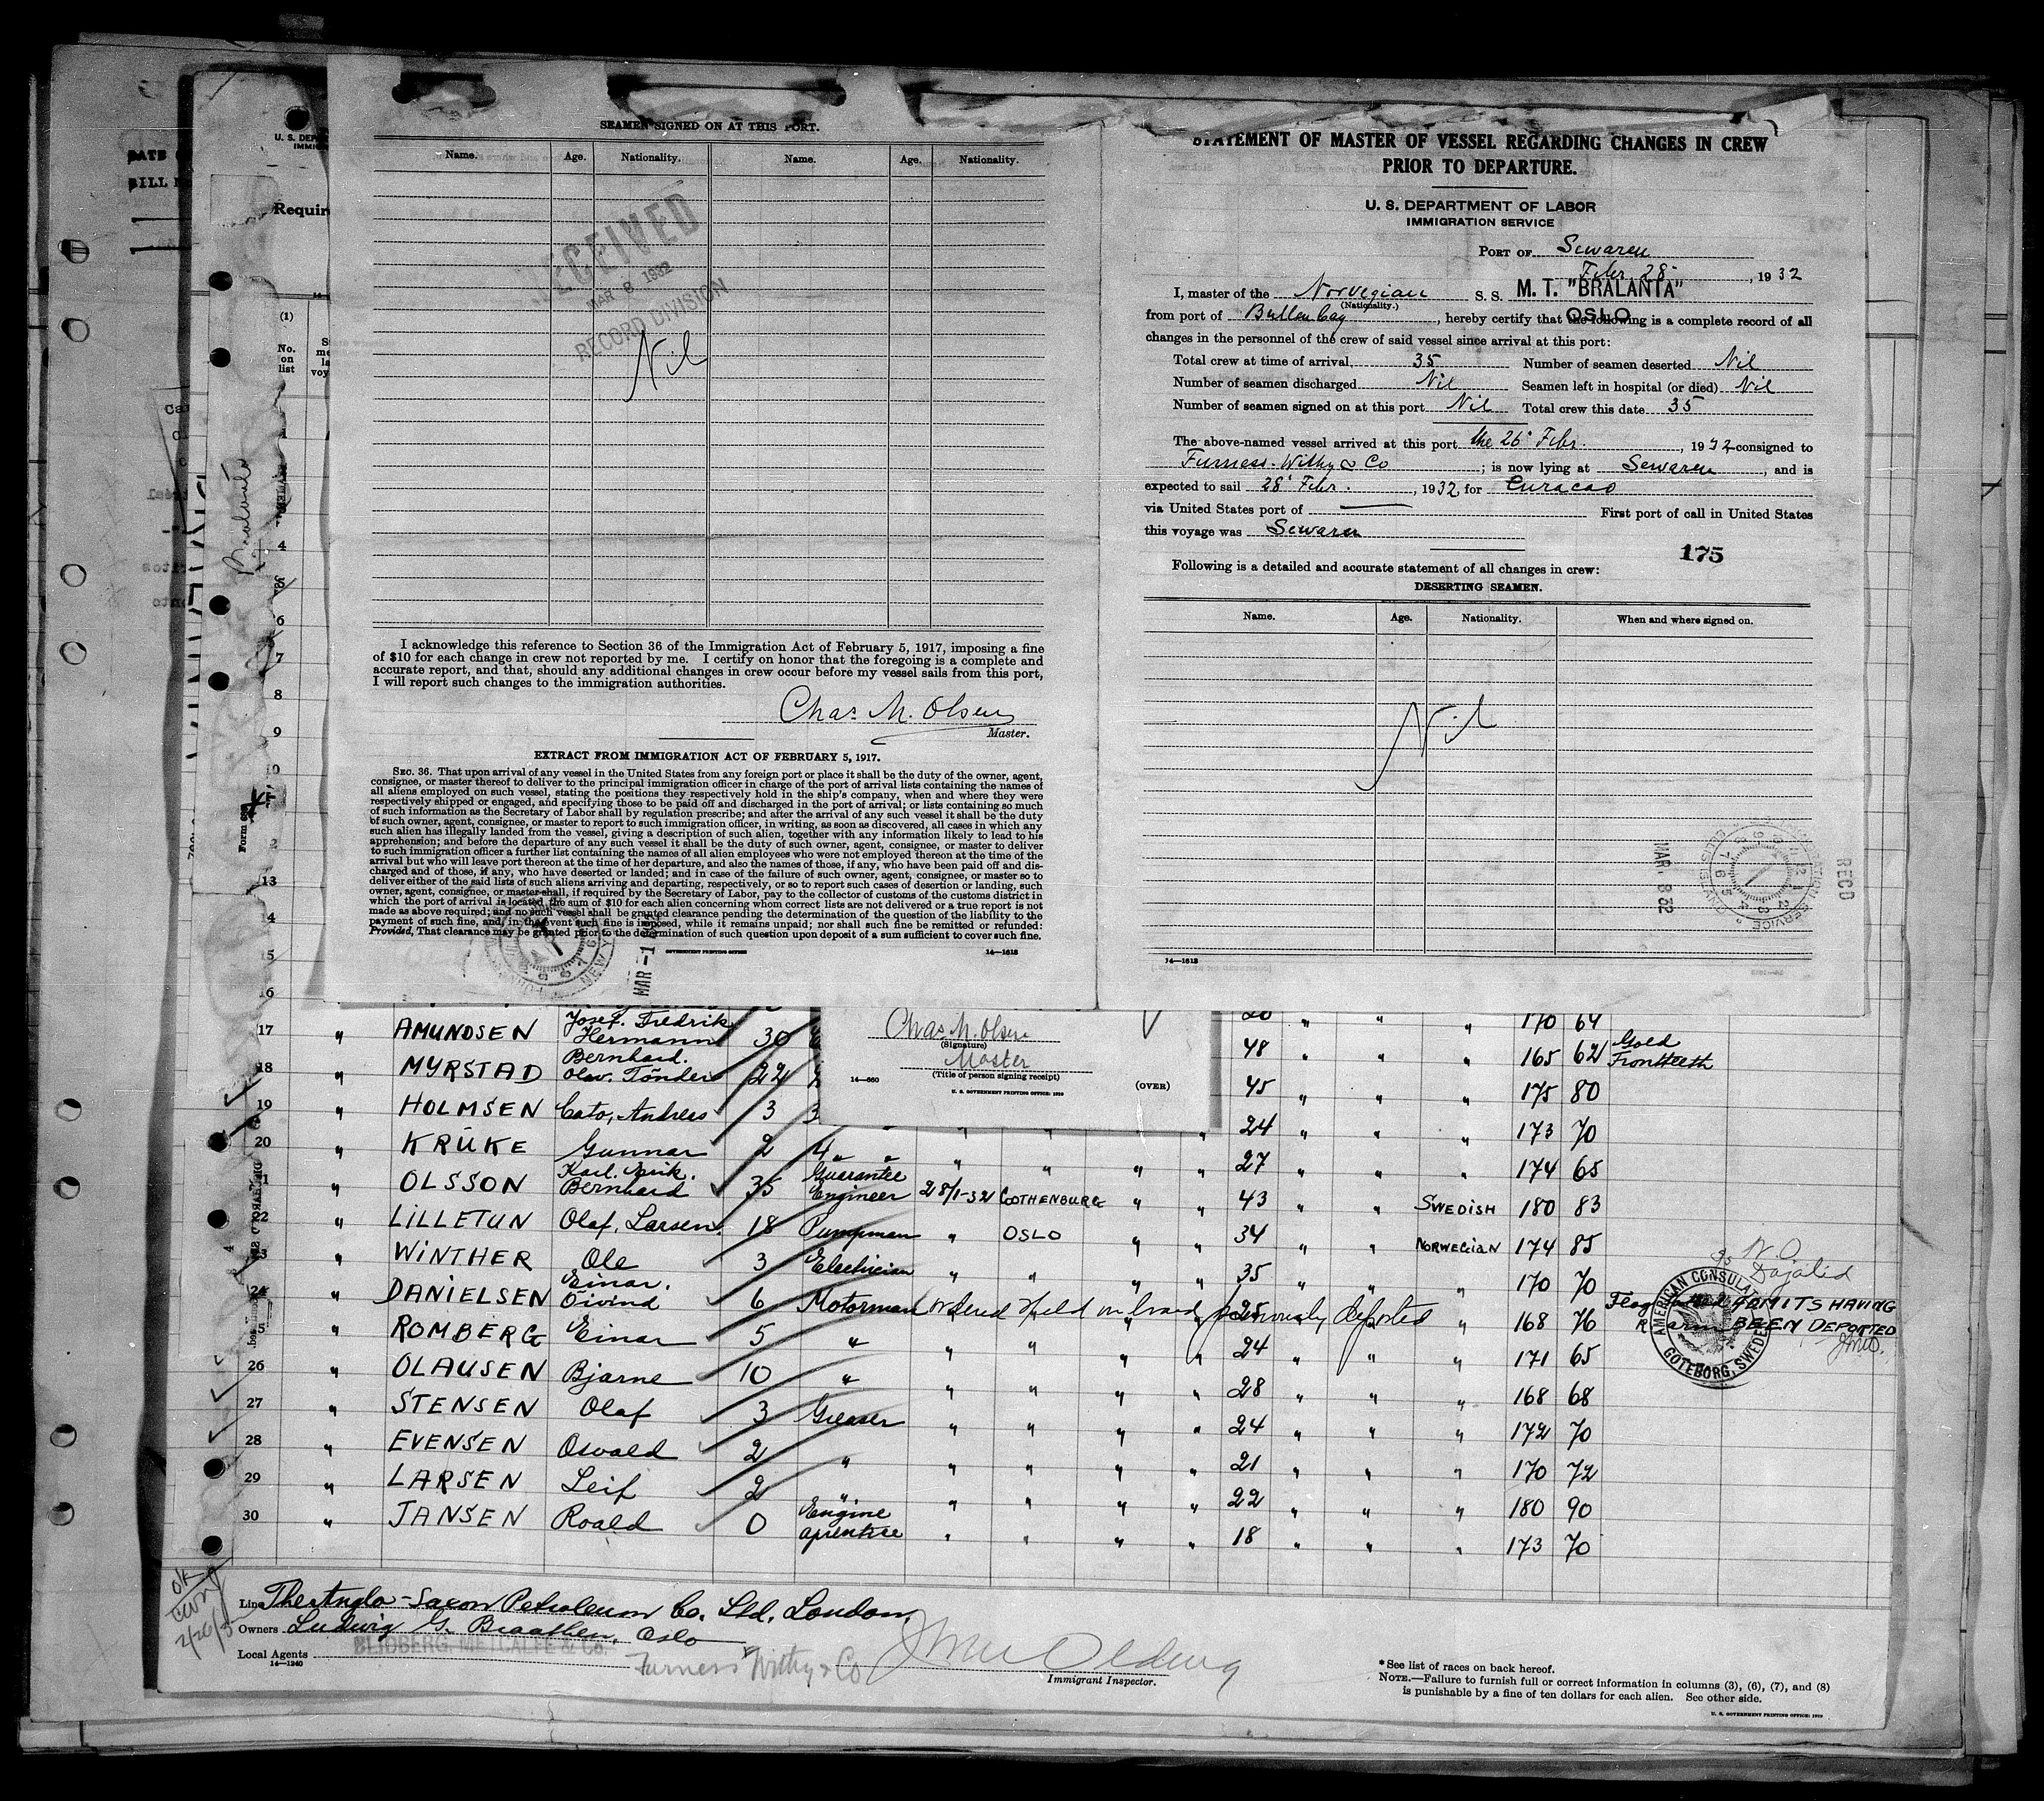 SEAMEN SIGNED ON AT THIS PORT.
Name. Age. Nationality. Name. Age. Nationality.
RECEIVED
MAR 8 1932
RECORD DIVISION
Nil
I acknowledge this reference to Section 36 of the Immigration Act of February 5, 1917, imposing a fine
of $10 for each change in crew not reported by me. I certify on honor that the foregoing is a complete and
accurate report, and that, should any additional changes in crew occur before my vessel sails from this port,
I will report such changes to the immigration authorities.
Chas M. Olsen
Master.
EXTRACT FROM IMMIGRATION ACT OF FEBRUARY 5, 1917.
SEC. 36. That upon arrival of any vessel in the United States from any foreign port or place it shall be the duty of the owner, agent,
consignee, or master thereof to deliver to the principal immigration officer in charge of the port of arrival lists containing the names of
all aliens employed on such vessel, stating the positions they respectively hold in the ship's company, when and where they were
respectively shipped or engaged, and specifying those to be paid off and discharged in the port of arrival; or lists containing so much
of such information as the Secretary of Labor shall by regulation prescribe; and after the arrival of any such vessel it shall be the duty
of such owner, agent, consignee, or master to report to such immigration officer, in writing, as soon as discovered, all cases in which any
such alien has illegally landed from the vessel, giving a description of such alien, together with any information likely to lead to his
apprehension; and before the departure of any such vessel it shall be the duty of such owner, agent, consignee, or master to deliver
to such immigration officer a further list containing the names of all alien employees who were not employed thereon at the time of the
arrival but who will leave port thereon at the time of her departure, and also the names of those, if any, who have been paid off and dis-
charged and of those, if any, who have deserted or landed; and in case of the failure of such owner, agent, consignee, or master so to
deliver either of the said lists of such aliens arriving and departing, respectively, or so to report such cases of desertion or landing, such
owner, agent, consignee, or master shall, if required by the Secretary of Labor, pay to the collector of customs of the customs district in
which the port of arrival is located the sum of $10 for each alien concerning whom correct lists are not delivered or a true report is not
made as above required; and no such vessel shall be granted clearance pending the determination of the question of the liability to the
payment of such fine, and, in the event such fine is imposed, while it remains unpaid; nor shall such fine be remitted or refunded:
Provided, That clearance may be granted prior to the determination of such question upon deposit of a sum sufficient to cover such fine.
GOVERNMENT PRINTING OFFICE 14—1613
STATEMENT OF MASTER OF VESSEL REGARDING CHANGES IN CREW
PRIOR TO DEPARTURE.
U. S. DEPARTMENT OF LABOR
IMMIGRATION SERVICE
PORT OF Sewaren
Febr 28, 1932
I, master of the Norwegian S. S. M. T. "BRALANTA"
(Nationality.)
OSLO
from port of Bullenbay, hereby certify that the following is a complete record of all
changes in the personnel of the crew of said vessel since arrival at this port:
Total crew at time of arrival 35 Number of seamen deserted Nil
Number of seamen discharged Nil Seamen left in hospital (or died) Nil
Number of seamen signed on at this port Nil Total crew this date 35
The above-named vessel arrived at this port the 26' Febr., 1932 consigned to
Furness-Withy & Co; is now lying at Sewaren, and is
expected to sail 28' Febr., 1932, for Curacao
via United States port of — First port of call in United States
this voyage was Sewaren
175
Following is a detailed and accurate statement of all changes in crew:
DESERTING SEAMEN.
Name. Age. Nationality. When and where signed on.
Nil
MAR. 8 32
RECD
14—1613
Chas M. Olsen
(Signature)
Master
(Title of person signing receipt)
14—660 (OVER)
U. S. GOVERNMENT PRINTING OFFICE: 1929
(1)
No. on list
17 " AMUNDSEN Josef. Fredrik Hermann 30 20 " " " 170 64
18 " MYRSTAD Bernhard. Olav. Tönder 22 48 " " " 165 62 Gold Frontteeth
19 " HOLMSEN Cato, Andreas 3 3 45 " " " 175 80
20 " KRÜKE Gunnar 2 4 " " " " " " 24 " " " 173 70
21 " OLSSON Karl. Erik. Bernhard 35 Guarantee Engineer 28/1-32 GOTHENBURG " " 27 " " " 174 65
22 " LILLETUN Olaf, Larsen 18 Pumpman " OSLO " " 43 " " SWEDISH 180 83
23 " WINTHER Ole 3 Electrician " " " " 34 " " NORWEGIAN 174 85
24 " DANIELSEN Einar. Öivind 6 Motorman ordered held on board previously deported 35 " " " 170 70
25 " ROMBERG Einar 5 " " " " " 25 " " " 168 76 ADMITS HAVING BEEN DEPORTED
26 " OLAUSEN Bjarne 10 " " " " " 24 " " " 171 65
27 " STENSEN Olaf 3 Greaser " " " " 28 " " " 168 68
28 " EVENSEN Oswald 2 " " " " " 24 " " " 172 70
29 " LARSEN Leif 2 " " " " " 21 " " " 170 72
30 " JANSEN Roald 0 Engine aprentice " " " " 22 " " " 180 90
18 " " " 173 70
AMERICAN CONSULATE
GOTEBORG, SWEDEN
Line The Anglo-Saxon Petroleum Co. Ltd. London,
Owners Ludwig G. Braathen, Oslo
BLIDBERG, METCALFE & Co.
Local Agents Furness Withy & Co
14—1240
Immigrant Inspector.
* See list of races on back hereof.
NOTE.—Failure to furnish full or correct information in columns (3), (6), (7), and (8)
is punishable by a fine of ten dollars for each alien. See other side.
U. S. GOVERNMENT PRINTING OFFICE: 1929